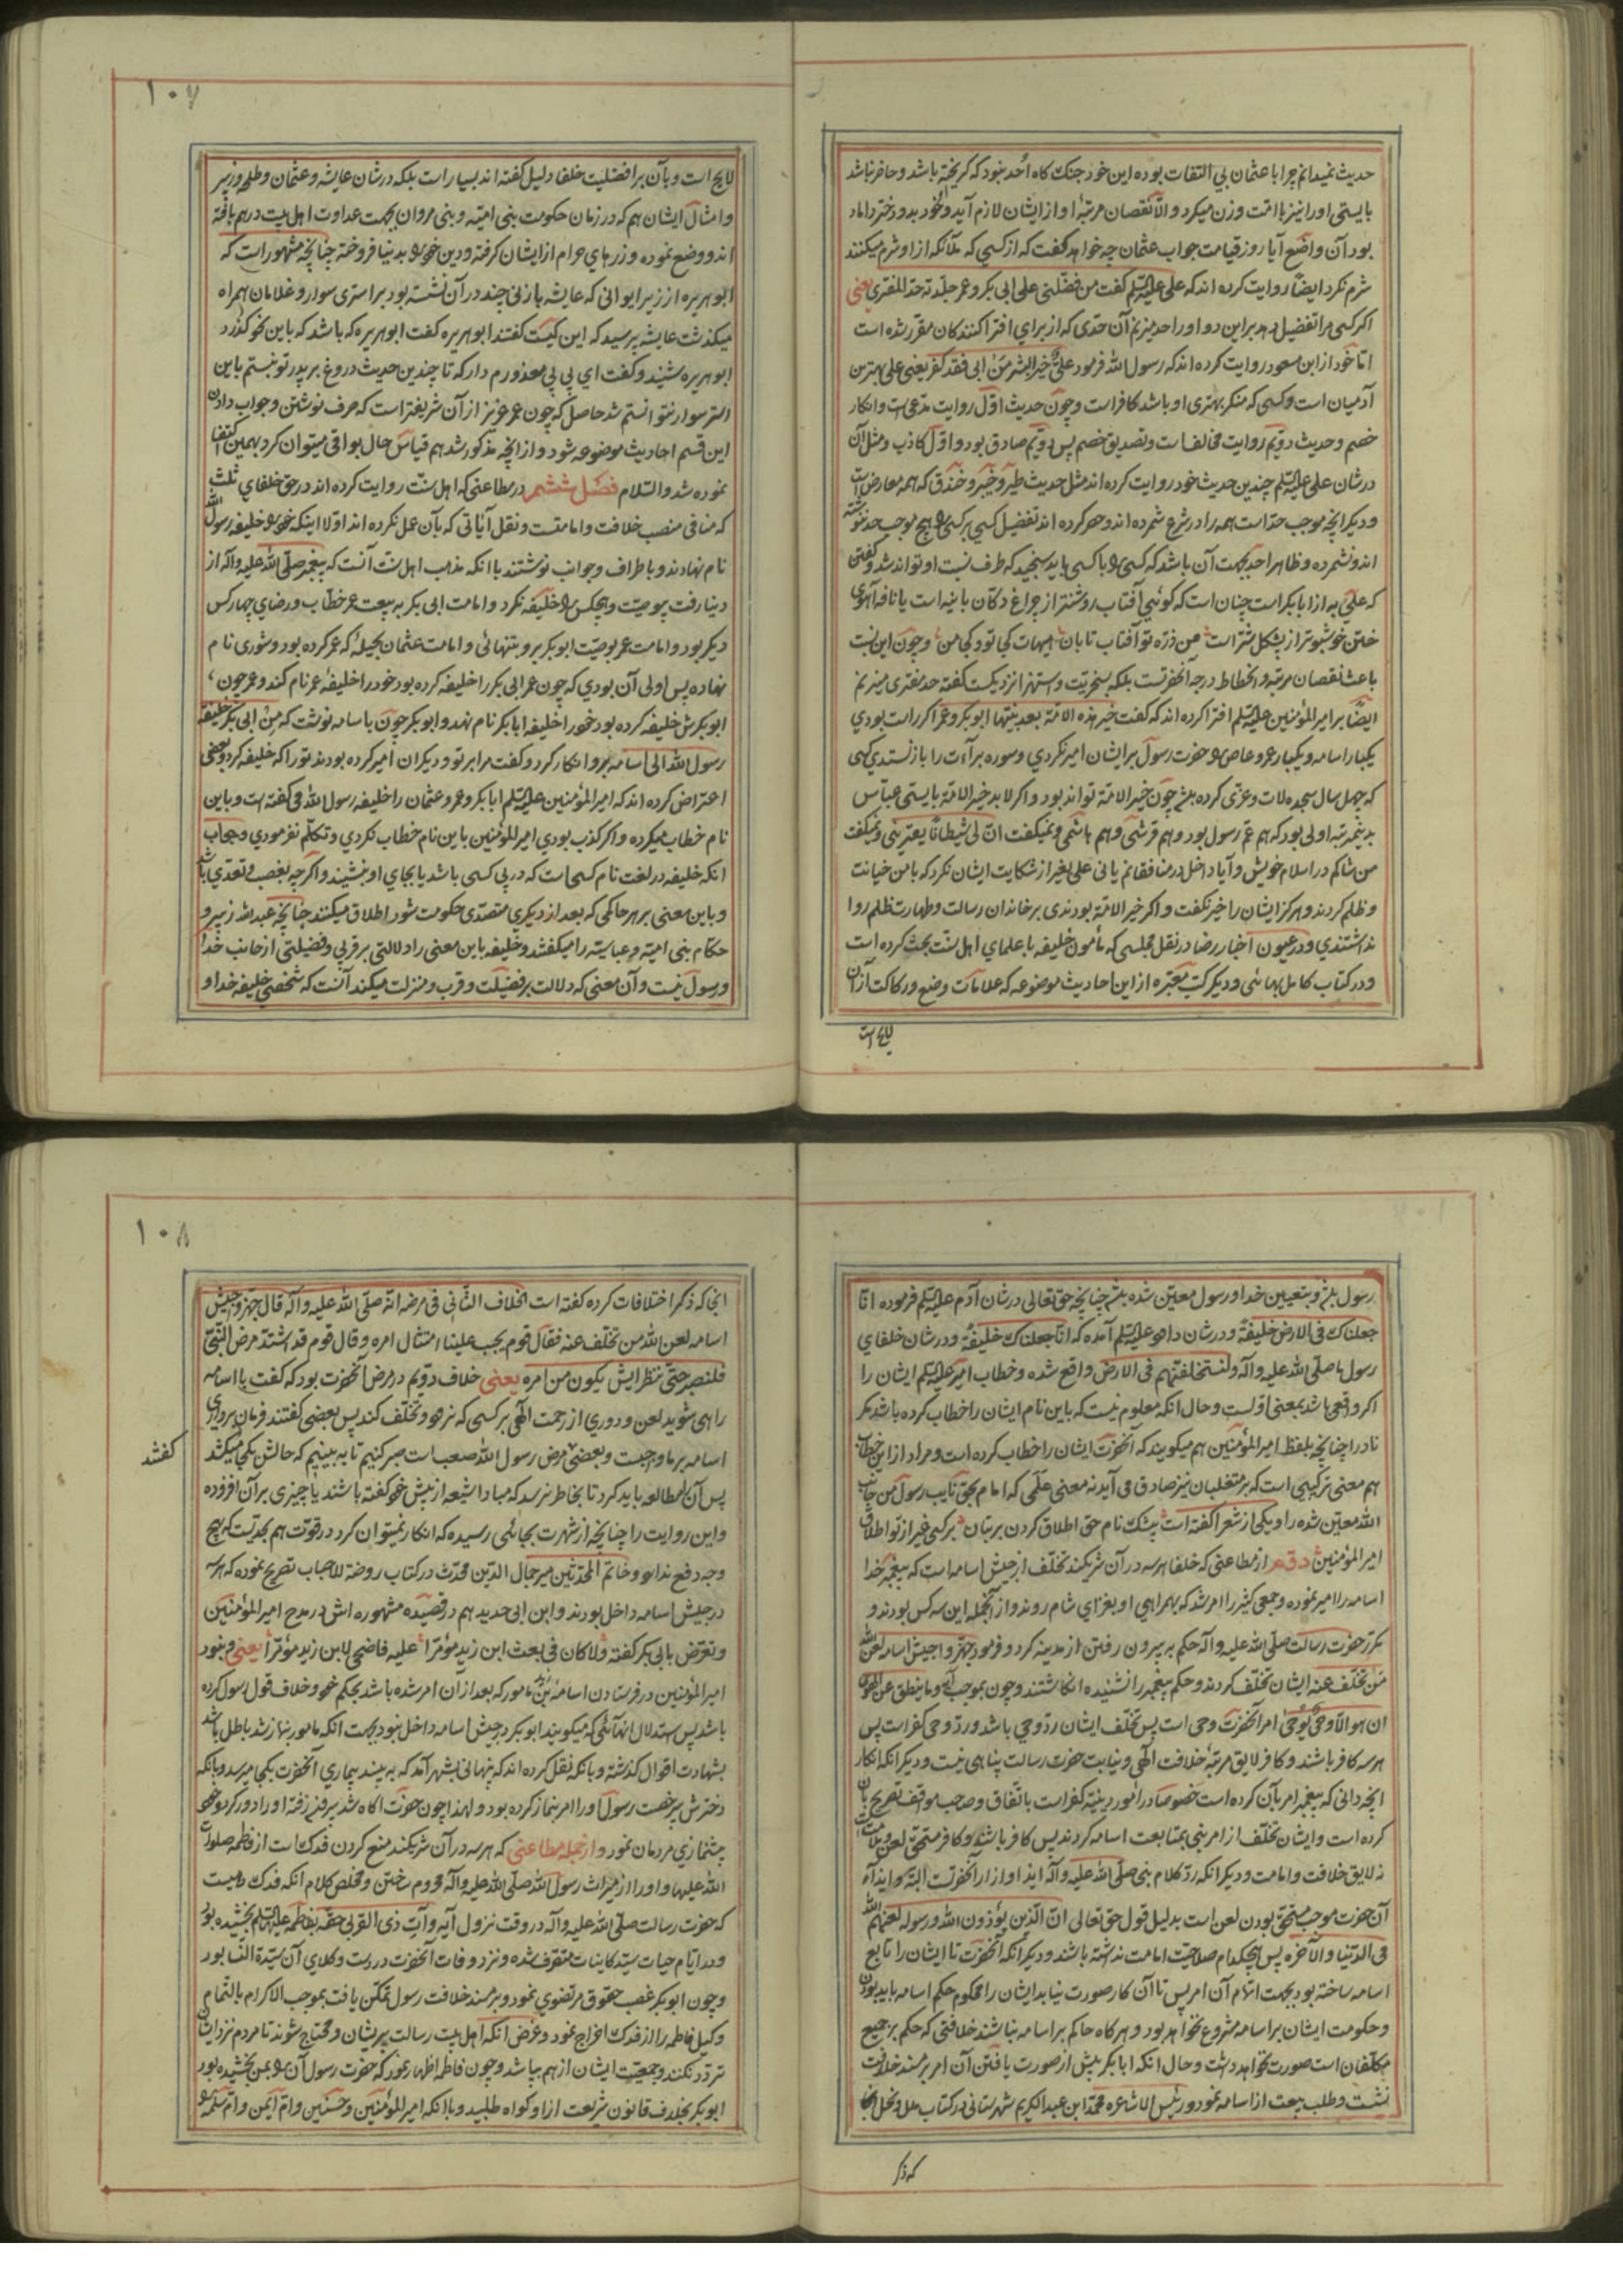 حدیث نمیدانم چرا با عثمان بی التفات بوده این خود جنک کاه اُحد نبود که کریخته باشد و حاضر نباشد
بایستی او را نیز با امت وزن میکرد و الّا نقصان مرتبهٔ او از ایشان لازم آید و خود بدو دختر داماد
بود آن واضع آیا روز قیامت جواب عثمان چه خواهد کفت که از کسی که ملائکه از او شرم میکنند
شرم نکرد ایضاً روایت کرده اند که علی علیه السلم کفت من فضّلنی علی ابی بکر و عمر جلدته حدّ المفتری یعنی
اکر کسی مرا تفضیل دهد بر این دو او را حد میزنم آن حدّی که از برای افترا کنندکان مقرّر شده است
امّا خود از ابن مسعود روایت کرده اند که رسول الله فرمود علیٌّ خیر البشر مَن ابی فقد کفر یعنی علی بهترین
آدمیان است و کسی که منکر بهتری او باشد کافر است و چون حدیث اوّل روایت مدّعی است و انکار
خصم و حدیث دویّم روایت مخالف است و تصدیق خصم پس دویّم صادق بود و اوّل کاذب و مثل آن
در شان علی علیه السلم چندین حدیث خود روایت کرده اند مثل حدیث طیر و خیبر و خندق که همه معارض است
و دیکر آنچه موجب حدّ است همه را در شرع شمرده اند و حصر کرده اند تفضیل کسی بر کسی را هیچ موجب حد ننوشته
اند و نشمرده و ظاهرا حد بجهت آن باشد که کسی را با کسی باید سنجید که طرف نسبت او تواند شد و کفتن
که علی به از ابابکر است چنان است که کوئیی آفتاب روشنتر از چراغ دکان بانیه است یا نافه آهوی
ختن خوشبوتر از پشکل شتر است من ذرّه تو آفتاب تابان هیهات کجا تو و کجا من و چون این نسبت
باعث نقصان مرتبه و انحطاط درجه آنحضرتست بلکه بسخریّت و استهزا نزدیکست کفته حد مفتری میزنم
ایضاً بر امیر المؤمنین علیه السلم افترا کرده اند که کفت خیر هذه الامّة بعد نبیّها ابو بکر و عمر اکر راست بودی
یکبار اسامه و یکبار عمرو عاص را حضرت رسول بر ایشان امیر نکردی و سوره براءت را باز نستدی کسی
که چهل سال سجده لات و عزّی کرده باشد چون خیر الامّة تواند بود و اکر لا بد خیر الامّة بایستی عبّاس
بدینمرتبه اولی بود که هم عمّ رسول بود و هم قرشی و هم هاشمی و نمیکفت انّ لی شیطانًا یعترینی و نمیکفت
من شاکم در اسلام خویش و آیا داخل در منافقانم یا نی علی بغیر از شکایت ایشان نکرد که با من خیانت
و ظلم کردند و هرکز ایشان را خیر نکفت و اکر خیر الامّة بودندی بر خاندان رسالت و طهارت ظلم روا
نداشتندی و در عیون اخبار رضا در نقل مجلسی که مأمون خلیفه با علمای اهل سنّت بحث کرده است
و در کتاب کامل بهائی و دیکر کتب معتبره از این احادیث موضوعه که علامات وضع و رکاکت از آن
لایح است
۱۰۷
لایح است و بآن بر افضلیت خلفا دلیل کفته اند بسیار است بلکه در شان عایشه و عثمان و طلحه و زبیر
و امثال ایشان هم که در زمان حکومت بنی امیّه و بنی مروان بجهت عداوت اهل بیت در هم بافته
اند و وضع نموده و زرهای حرام از ایشان کرفته و دین خود را بدنیا فروخته چنانچه مشهور است که
ابو هریره از زیر ایوانی که عایشه با زنی چند در آن نشسته بود بر استری سوار و غلامان همراه
میکذشت عایشه پرسید که این کیست کفتند ابو هریره کفت ابو هریره که باشد که باین نحو کذرد
ابو هریره شنید و کفت ای بی بی معذورم دار که تا چندین حدیث دروغ بر پدر تو نبستم باین
استر سوار نتوانستم شد حاصل که چون عمر عزیز از آن شریفتر است که صرف نوشتن و جواب دادن
این قسم احادیث موضوعه شود و از آنچه مذکور شد هم قیاس حال بواقی میتوان کرد بهمین اکتفا
نموده شد والسّلام فصل ششم در مطاعنی که اهل سنّت روایت کرده اند در حق خلفای ثلث
که منافی منصب خلافت و امامتست و نقل آیاتی که بآن عمل نکرده اند اوّلا اینکه خود را خلیفه رسول الله
نام نهادند و باطراف و جوانب نوشتند با انکه مذهب اهل سنت آنست که پیغمبر صلّی الله علیه و آله از
دنیا رفت بیوصیّت و هیچکس را خلیفه نکرد و امامت ابی بکر به بیعت عمر خطّاب و رضای چهار کس
دیکر بود و امامت عمر بوصیّت ابو بکر بود بتنهائی و امامت عثمان بحیلهٔ که عمر کرده بود و شوری نام
نهاده پس اولی آن بودی که چون عمر ابی بکر را خلیفه کرده بود خود را خلیفهٔ عمر نام کند و عمر چون
ابو بکرش خلیفه کرده بود خود را خلیفه ابابکر نام نهد و ابو بکر چون باسامه نوشت که مِن ابی بکر خلیفة
رسول الله الی اسامه بر او انکار کرد و کفت مرا بر تو و دیکران امیر کرده بودند تو را که خلیفه کرد و بعضی
اعتراض کرده اند که امیر المؤمنین علیه السلم ابابکر و عمر و عثمان را خلیفه رسول الله می کفته است و باین
نام خطاب میکرده و اکر کذب بودی امیر المؤمنین باین نام خطاب نکردی و تکلّم نفرمودی و جواب
انکه خلیفه در لغت نام کسی است که در پی کسی باشد یا بجای او بنشیند و اکرچه بغصب و تعدّی باشد
و باین معنی بر هر حاکمی که بعد از دیکری متصدّی حکومت شود اطلاق میکنند چنانچه عبدالله زبیر و
حکّام بنی امیّه و عباسیّه را میکفتند و خلیفه باین معنی را دلالتی بر قربی و فضیلتی از جانب خدا
و رسول نیست و آن معنی که دلالت بر فضیلت و قرب و منزلت میکند آنست که شخصی خلیفه خدا و
رسول باشد و بتعیین خدا و رسول معیّن شده باشد چنانچه حقّ تعالی در شان آدم علیه السلم فرموده انّا
جعلناک فی الارض خلیفةً و در شان داود علیه السلم آمده که انّا جعلناک خلیفةً و در شان خلفای
رسول ما صلّی الله علیه و آله و لنستخلفنّهم فی الارض واقع شده و خطاب امیر علیه السلم ایشان را
اکر واقعی باشد بمعنی اولست و حال انکه معلوم نیست که باین نام ایشان را خطاب کرده باشد مکر
نادرا چنانچه بلفظ امیر المؤمنین هم میکویند که آنحضرت ایشان را خطاب کرده است و مراد از این خطاب
هم معنی ترکیبی است که بر متغلبان نیز صادق می آید نه معنی علَمی که امام بحقّ نایب رسول من جانب
الله معیّن شده را و یکی از شعرا کفته است بیشک نام حق اطلاق کردن بر بتان بر کسی غیر از تو اطلاق
امیر المؤمنین دویّم از مطاعنی که خلفا هر سه در آن شریکند تخلّف از جیش اسامه است که پیغمبر خدا
اسامه را امیر نموده و جمعی کثیر را امر شد که بهمراهی او بغزای شام روند و از آنجمله این سه کس بودند و
مکرّر حضرت رسالت صلّی الله علیه و آله حکم به بیرون رفتن از مدینه کرد و فرمود جهّزوا جیش اسامه لعن الله
مَن تخلّف عنه ایشان تخلّف کردند و حکم پیغمبر را نشنیده انکاشتند و چون بموجب آیه و ما ینطق عن الهوی
ان هو الّا وحیٌ یوحی امر آنحضرت وحی است پس تخلّف ایشان ردّ وحی باشد و ردّ وحی کفر است پس
هر سه کافر باشند و کافر لایق مرتبهٔ خلافت الٓهی و نیابت حضرت رسالت پناهی نیست و دیکر انکه انکار
آنچه دانی که پیغمبر امر بآن کرده است خصوصا در امور دینیّه کفر است باتّفاق و صاحب مواقف تصریح بآن
کرده است و ایشان تخلّف از امر نبی بمتابعت اسامه کردند پس کافر باشند و کافر مستحقّ لعن و ملامت است
نه لایق خلافت و امامت و دیکر انکه ردّ کلام نبی صلّی الله علیه و آله ایذا و ازار آنحضرتست البتّه و ایذاء
آن حضرت موجب مستحقّ بودن لعن است بدلیل قول حق تعالی انّ الّذین یؤذون الله و رسوله لعنهم الله
فی الدّنیا و الآخره پس هیچکدام صلاحیّت امامت نداشته باشند و دیکر انکه آنحضرت تا ایشان را تابع
اسامه ساخته بود بجهت اتمام آن امر پس تا آن کار صورت نیابد ایشان را محکوم حکم اسامه باید بودن
و حکومت ایشان بر اسامه مشروع نخواهد بود و هرکاه حاکم بر اسامه نباشند خلافتی که حکم بر جمیع
مکلّفان است صورت نخواهد داشت و حال انکه ابابکر پیش از صورت یافتن آن امر بر مسند خلافت
نشست و طلب بیعت از اسامه نمود و رئیس الاشاعره محمّد ابن عبد الکریم شهرستانی در کتاب ملل و نحل آنجا
که ذکر
۱۰۸
آنجا که ذکر اختلافات کرده کفته است الخلاف الثّانی فی مرضه انّه صلّی الله علیه و آله قال جهّزوا جیش
اسامه لعن الله من تخلّف عنه فقال قوم یجب علینا امتثال امره و قال قوم قد اشتدّ مرض النّبیّ
فلنصبر حتّی ننظر ایش یکون من امره یعنی خلاف دویّم در مرض آنحضرت بود که کفت با اسامه
راهی شوید لعن و دوری از رحمت الٓهی بر کسی که نرود و تخلّف کند پس بعضی کفتند فرمان برداری
اسامه بر ما واجبست و بعضی مرض رسول الله صعب است صبر کنیم تا به بینیم که حالش بکجا میکشد
کفتند
پس آن مطالعه باید کرد تا بخاطر نرسد که مبادا شیعه از پیش خود کفته باشند یا چیزی بر آن افزوده
و این روایت را چنانچه از شهرت بجائی رسیده که انکار نمیتوان کرد در قوّت هم بحدّیست که بهیچ
وجه دفع ندارد و خاتم المحدّثین میر جمال الدّین محدّث در کتاب روضة الاحباب تصریح نموده که هر سه
در جیش اسامه داخل بودند و ابن ابی حدید هم در قصیده مشهوره اش در مدح امیر المؤمنین
و تعرّض بابی بکر کفته و لا کان فی بعث ابن زید مؤمّرا علیه فاضحی لابن زید مؤمّرا یعنی و نبود
امیر المؤمنین در فرستادن اسامه بن زید مامور که بعد از آن امر شده باشد بحکم خود و خلاف قول رسول کرده
باشد پس استدلال انهائی که میکویند ابو بکر در جیش اسامه داخل نبود بجهت انکه مامور بنماز شد باطل باشد
بشهادت اقوال کذشته و بانکه نقل کرده اند که پنهانی بشهر آمد که به بیند بیماری آنحضرت بکجا میرسد و بانکه
دخترش بیرخصت رسول او را امر بنماز کرده بود و لهذا چون حضرت آکاه شد بیرون رفته او را دور کرد و خود
پیشنمازی مردمان نمود و از جمله مطاعنی که هر سه در آن شریکند منع کردن فدک است از فاطمه صلوات
الله علیها و او را از میراث رسول الله صلّی الله علیه و آله محروم ساختن و مخلص کلام انکه فدک دهیست
که حضرت رسالت صلّی الله علیه و آله در وقت نزول آیه و آت ذی القربی حقّه بفاطمه علیها السلم بخشیده بود
و در ایّام حیات سیّد کاینات متصرّف شده و نزد وفات آنحضرت در دست وکلای آن سیّدة النّسا بود
و چون ابو بکر غصب حقوق مرتضوی نمود و بر مسند خلافت رسول تمکّن یافت بموجب الاکرام بالتّمام
وکیل فاطمه را از فدک اخراج نمود و غرض آنکه اهل بیت رسالت پریشان و محتاج شوند تا مردم نزد ایشان
تردّد نکنند و جمعیّت ایشان از هم بپاشد و چون فاطمه اظهار نمود که حضرت رسول آن را بمن بخشیده بود
ابو بکر بخلاف قانون شریعت از او کواه طلبید و با انکه امیر المؤمنین و حسنین و امّ ایمن و امّ سلمه